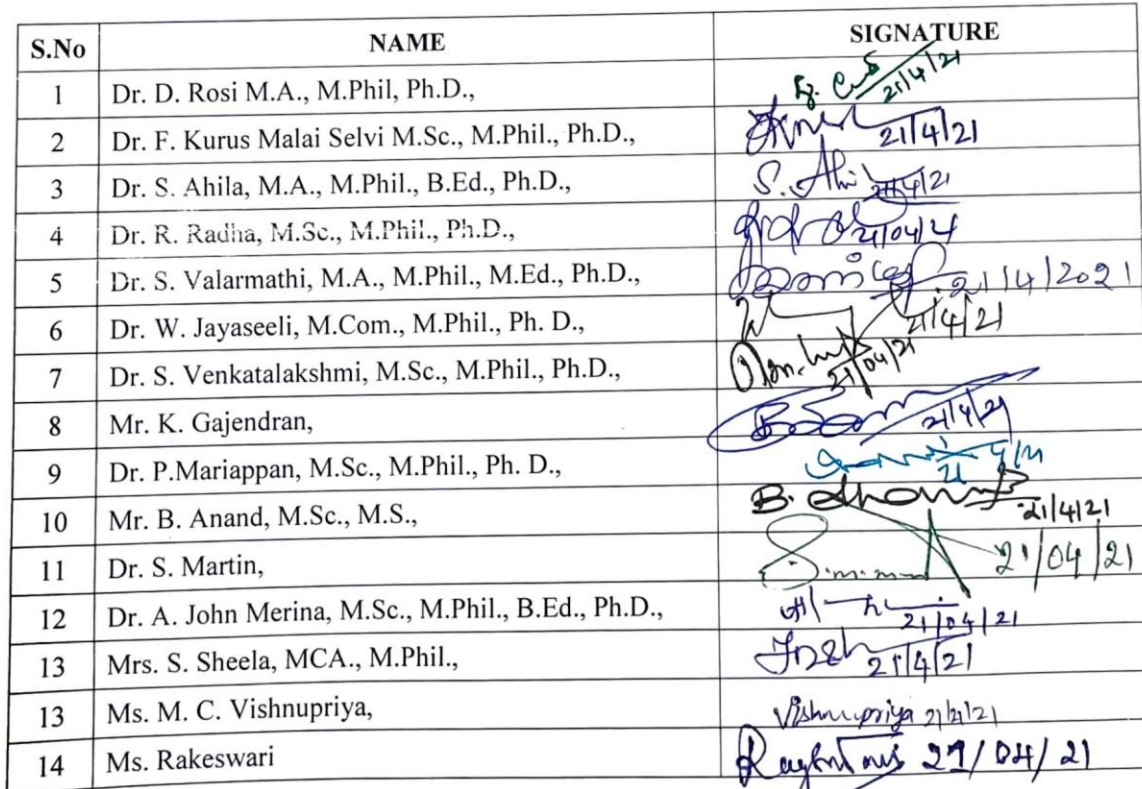 S.No NAME SIGNATURE
1 Dr. D. Rosi M.A., M.Phil, Ph.D., 21/4/21
2 Dr. F. Kurus Malai Selvi M.Sc., M.Phil., Ph.D., 21/4/21
3 Dr. S. Ahila, M.A., M.Phil., B.Ed., Ph.D., S. Ahi 21/4/21
4 Dr. R. Radha, M.Sc., M.Phil., Ph.D., 21/04/21
5 Dr. S. Valarmathi, M.A., M.Phil., M.Ed., Ph.D., 21/4/2021
6 Dr. W. Jayaseeli, M.Com., M.Phil., Ph. D., 21/4/21
7 Dr. S. Venkatalakshmi, M.Sc., M.Phil., Ph.D., 21/04/21
8 Mr. K. Gajendran, 21/4/21
9 Dr. P.Mariappan, M.Sc., M.Phil., Ph. D., 21
10 Mr. B. Anand, M.Sc., M.S., B. 21/4/21
11 Dr. S. Martin, 21/04/21
12 Dr. A. John Merina, M.Sc., M.Phil., B.Ed., Ph.D., 21/04/21
13 Mrs. S. Sheela, MCA., M.Phil., 21/4/21
13 Ms. M. C. Vishnupriya, Vishnupriya 21/4/21
14 Ms. Rakeswari 21/04/21